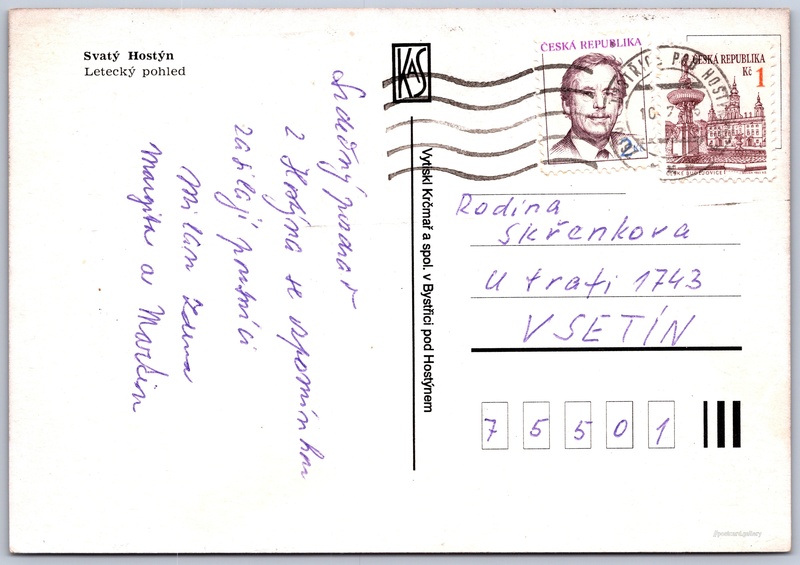 Svatý Hostýn
Letecký pohled
KAS
Srdečný pozdrav
z Hostýna se vzpomínkou
zasílají poutníci
Milan Zdena
Margita a Martin
Vytiskl Krčmař a spol. v Bystřici pod Hostýnem
ČESKÁ REPUBLIKA
ČESKÁ REPUBLIKA
Kč 1
ČESKÉ BUDĚJOVICE
POD HOST
Rodina
Skřenkova
U trati 1743
VSETÍN
7 5 5 0 1